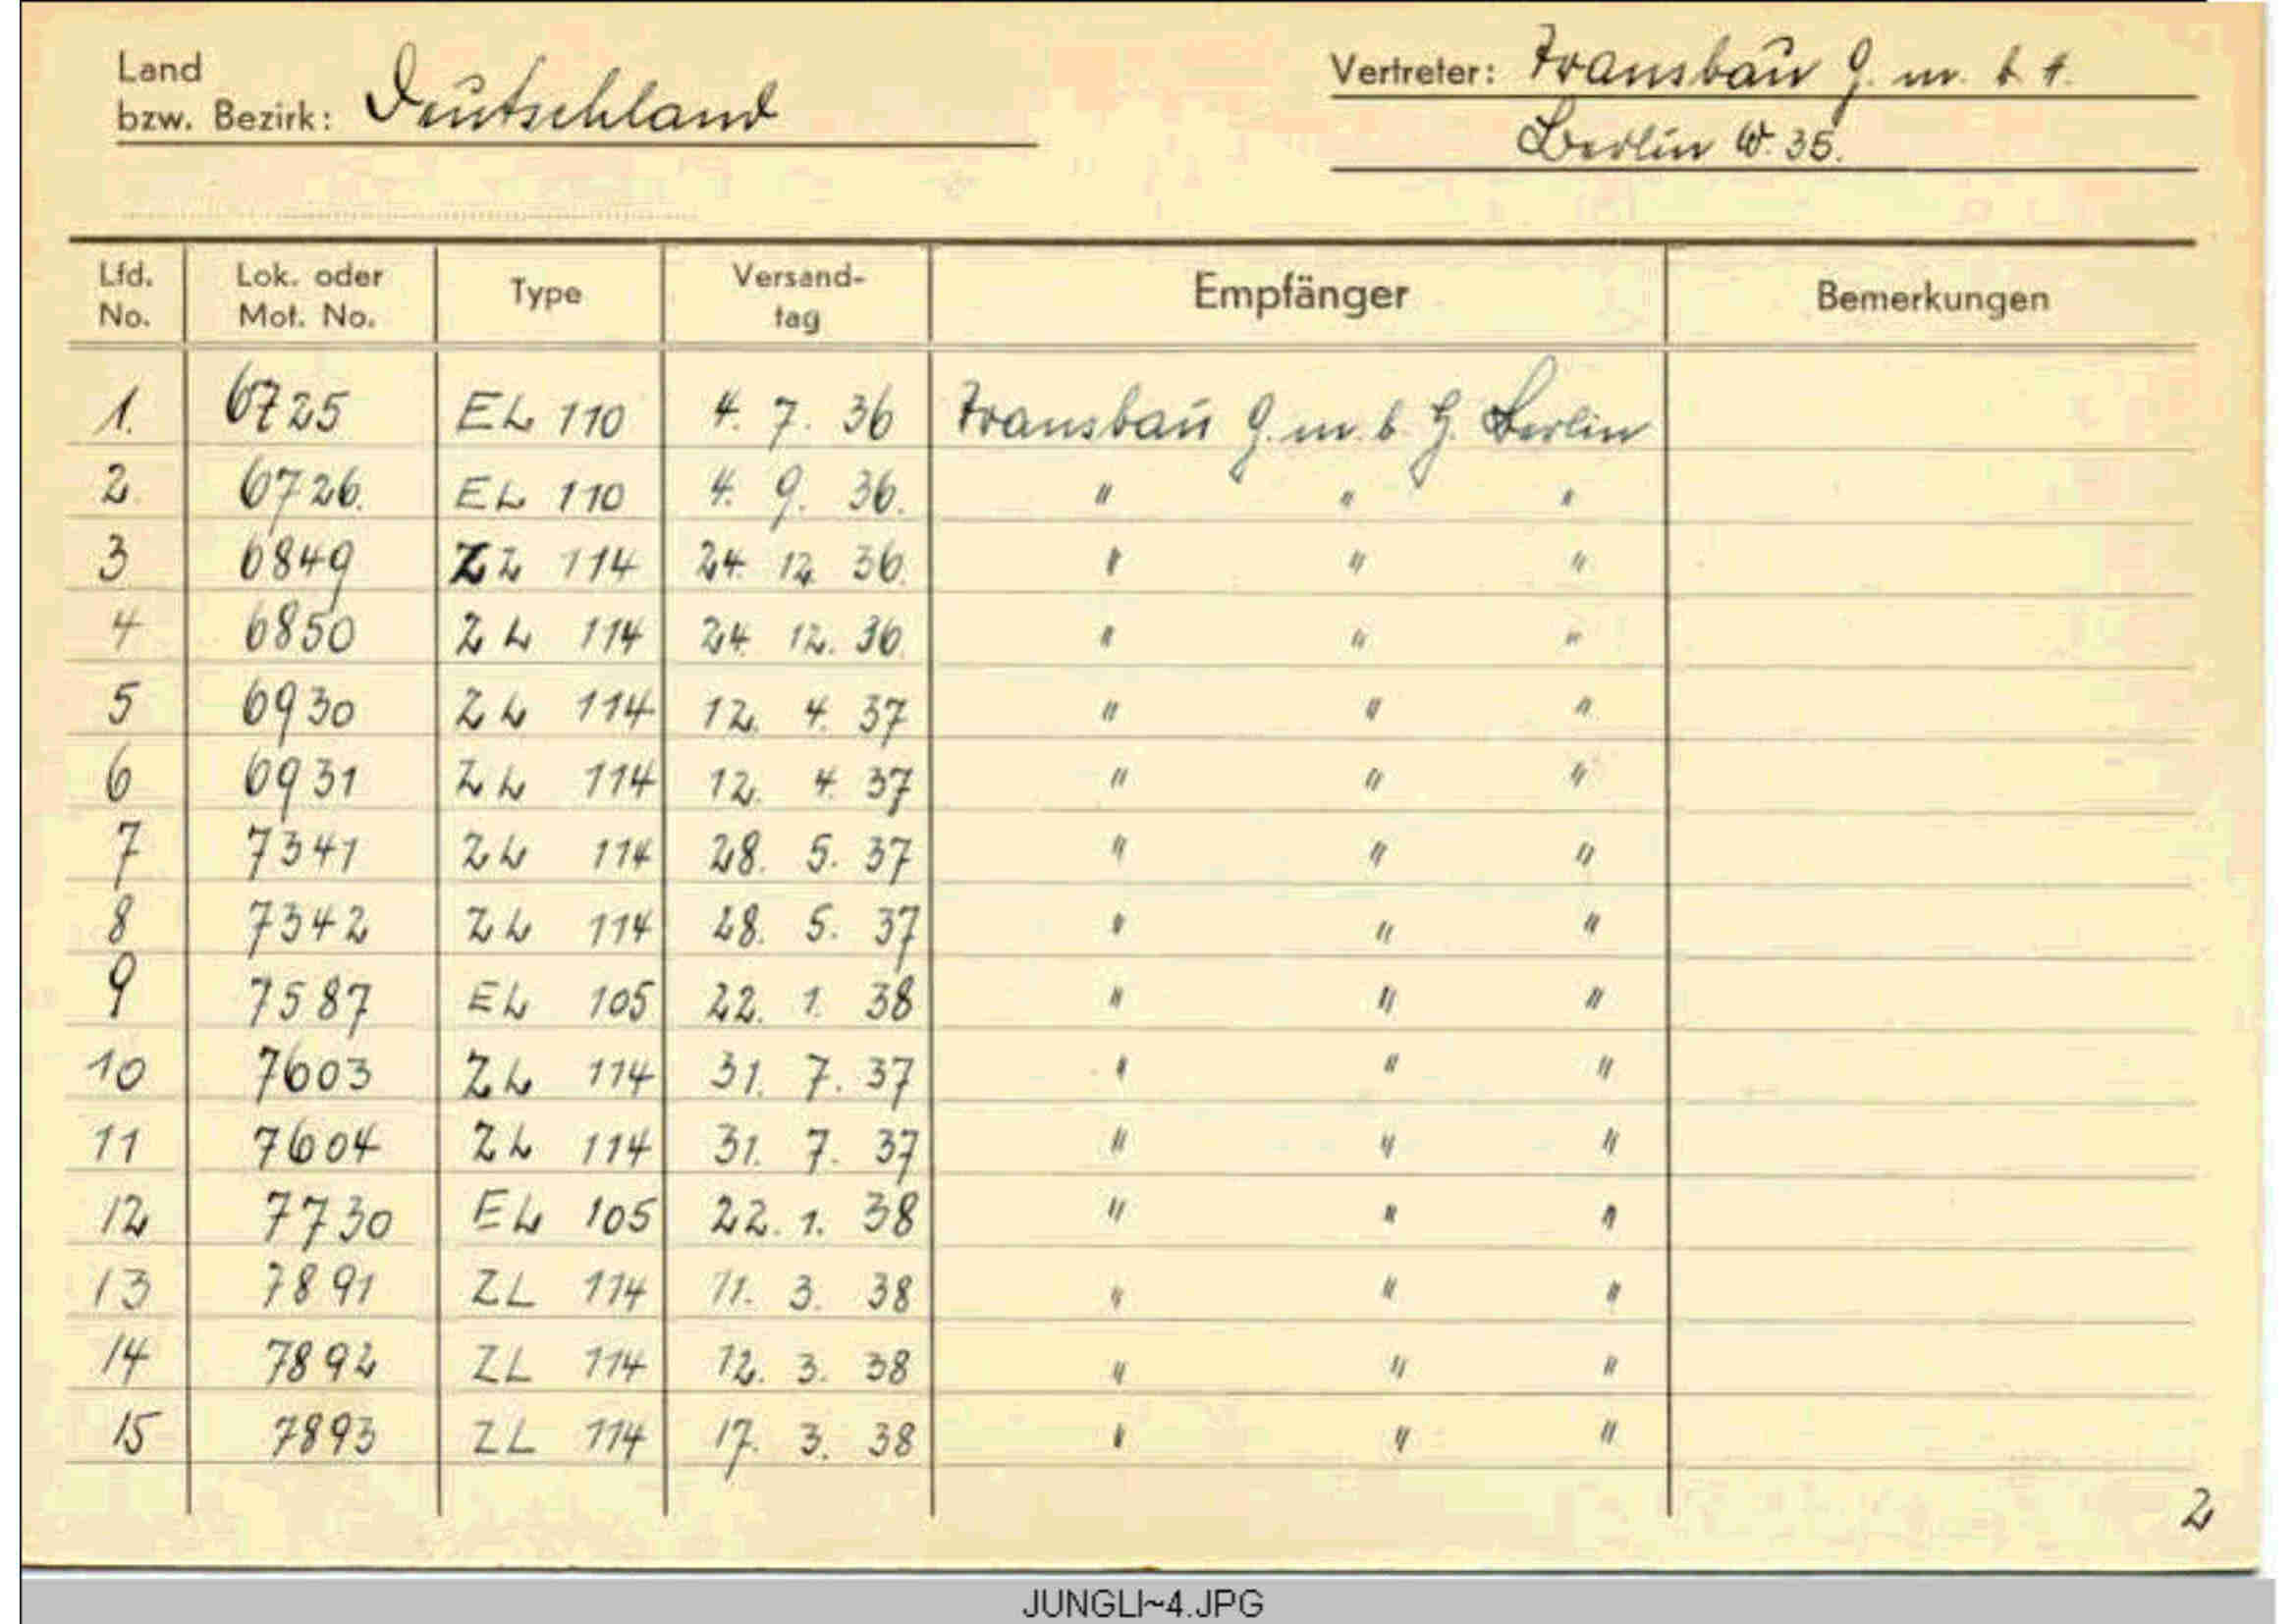 Land
bzw. Bezirk: Deutschland
Vertreter: Transbau G. m. b. H.
Berlin W. 35.
Lfd. No. Lok. oder Mot. No. Type Versand-tag Empfänger Bemerkungen
1. 6725 EL 110 4. 7. 36 Transbau G. m. b. H. Berlin
2. 6726. EL 110 4. 9. 36. " " "
3 6849 ZL 114 24. 12. 36. " " "
4 6850 ZL 114 24. 12. 36. " " "
5 6930 ZL 114 12. 4. 37 " " "
6 6931 ZL 114 12. 4. 37 " " "
7 7341 ZL 114 28. 5. 37 " " "
8 7342 ZL 114 28. 5. 37 " " "
9 7587 EL 105 22. 1. 38 " " "
10 7603 ZL 114 31. 7. 37 " " "
11 7604 ZL 114 31. 7. 37 " " "
12 7730 EL 105 22. 1. 38 " " "
13 7891 ZL 114 11. 3. 38 " " "
14 7892 ZL 114 12. 3. 38 " " "
15 7893 ZL 114 17. 3. 38 " " "
2
JUNGLI~4.JPG